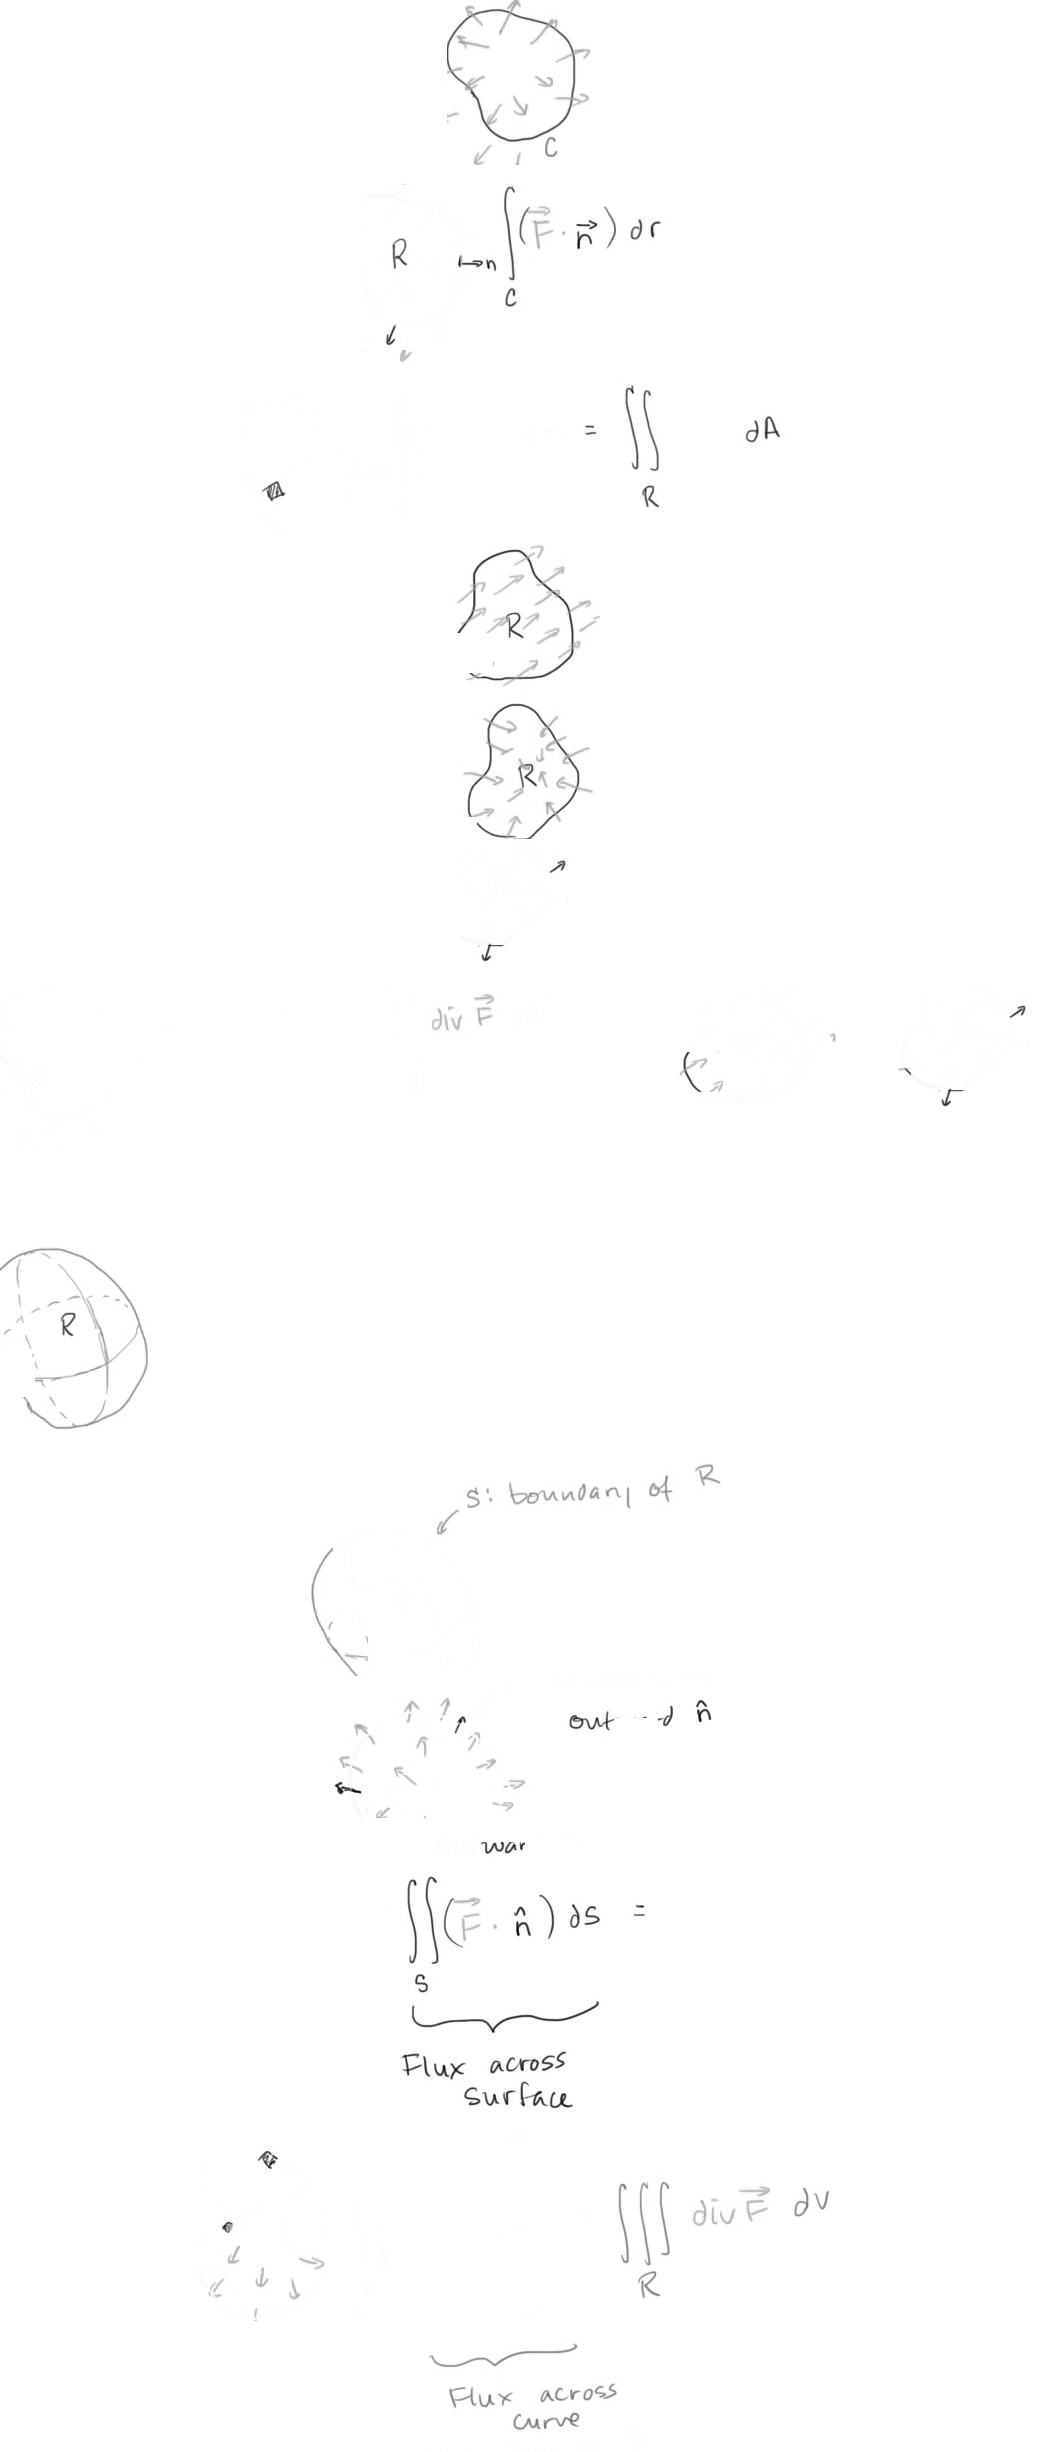 C
R
↦n ∫_C (F⃗ · n⃗) dr
= ∬_R dA
R
R
div F⃗
R
S: boundary of R
out d n̂
war
∬_S (F⃗ · n̂) dS =
Flux across
surface
∭_R div F⃗ dv
Flux across
curve